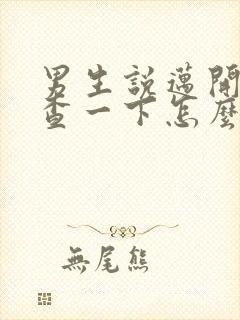 男生說邁開
查一下怎麼
無尾熊